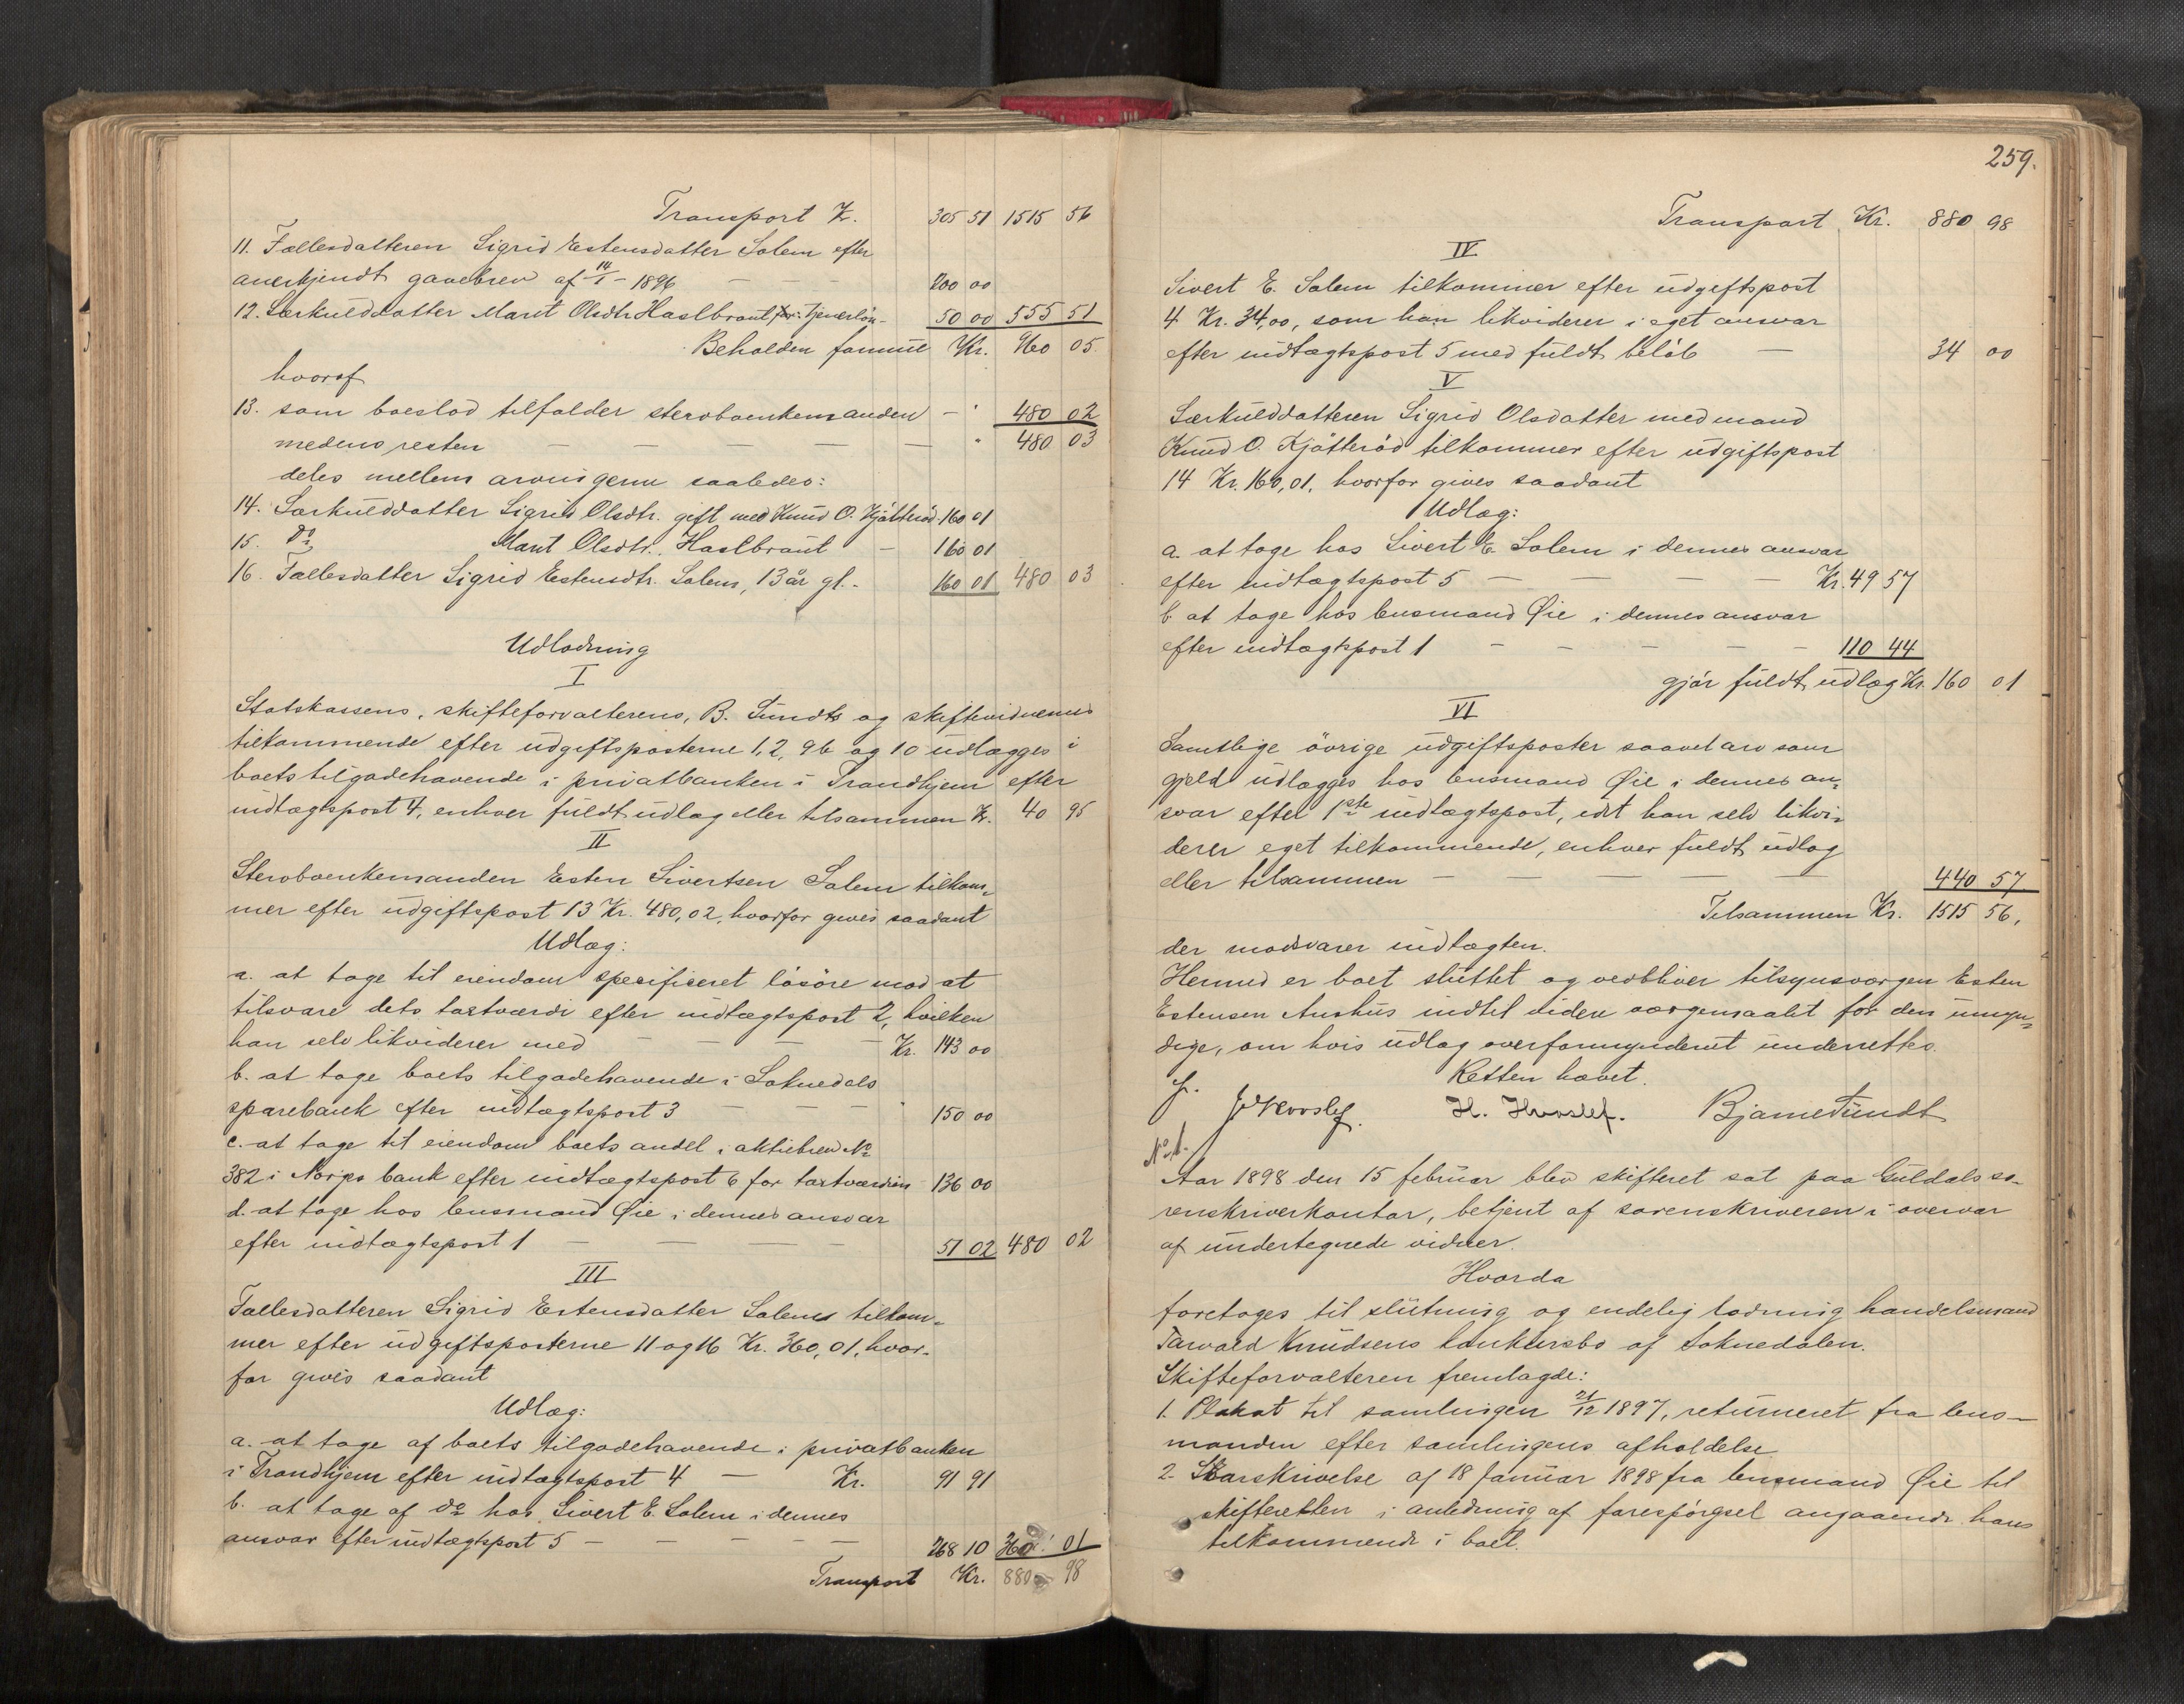 Transport Kr. 305 51 1515 56
11. Fællesdatteren Sigrid Estensdatter Solem efter
anerkjendt gavebrev af 14/1 - 1896 — — — 200 00
12. Særkulddatter Marit Olsdtr Haslbraut, for tjenerløn - 50 00 555 51
Beholden formue Kr. 960 05
hvoraf
13. som boeslod tilfalder stervboenkemanden — " 480 02
medens resten — — — — — " 480 03
deles mellem arvingerne saaledes:
14. Særkulddatter Sigrid Olsdtr. gift med Knud O. Kjötteröd 160 01
15. Do Marit Olsdtr. Haslbraut — 160 01
16. Fællesdatter Sigrid Estensdtr. Solem, 13 år gl. - 160 01 480 03
Udlodning
I
Statskassens, skifteforvalterens, B. Sundts og skiftevidnernes
tilkommende efter udgiftsposterne 1, 2, 9b og 10 udlægges i
boets tilgodehavende i privatbanken i Trondhjem efter
indtægtspost 4, enhver fuldt udlæg eller tilsammen Kr. 40 95
II
Stervboenkemanden Esten Sivertsen Solem tilkom-
mer efter udgiftspost 13 Kr. 480,02, hvorfor gives saadant
Udlæg:
a. at tage til eiendom specificeret lösöre mod at
tilsvare dets taxtværdi efter indtægtspost 2, hvilken
han selv likviderer med — — — — Kr. 143 00
b. at tage boets tilgodehavende i Soknedals
sparebank efter indtægtspost 3 — — — " 150 00
c. at tage til eiendom boets andel i aktiebrev No
382 i Norges bank efter indtægtspost 6 for taxtværdien 136 00
d. at tage hos lensmand Øie i dennes ansvar
efter indtægtspost 1 — — — 51 02 480 02
III
Fællesdatteren Sigrid Estensdatter Solem tilkom-
mer efter udgiftsposterne 11 og 16 Kr. 360,01, hvor-
for gives saadant
Udlæg:
a. at tage af boets tilgodehavende i privatbanken
i Trondhjem efter indtægtspost 4 — Kr. 91 91
b. at tage af do hos Sivert E. Solem i dennes
ansvar efter indtægtspost 5 — — — — 268 10 360 01
Transport Kr. 880 98
259.
Transport Kr. 880 98
IV
Sivert E. Solem tilkommer efter udgiftspost
4 Kr. 34,00, som han likviderer i eget ansvar
efter indtægtspost 5 med fuldt beløb — 34 00
V
Særkulddatteren Sigrid Olsdatter med mand
Knud O. Kjötteröd tilkommer efter udgiftspost
14 Kr. 160,01, hvorfor gives saadant
Udlæg:
a. at tage hos Sivert E. Solem i dennes ansvar
efter indtægtspost 5 — — — — Kr. 49 57
b. at tage hos lensmand Øie i dennes ansvar
efter indtægtspost 1 — — — — — 110 44
gjør fuldt udlæg Kr. 160 01
VI
Samtlige övrige udgiftsposter saavel arv som
gjeld udlægges hos lensmand Øie i dennes an-
svar efter 1ste indtægtspost, idet han selv likvi-
derer eget tilkommende, enhver fuldt udlæg
eller tilsammen — — — — 440 57
Tilsammen Kr. 1515 56,
der modsvarer indtægten.
Hermed er boet sluttet og vedbliver tilsynsvergen Esten
Estensen Aushus indtil videre værgemaalet for den umyn-
dige, om hvis udlæg overformynderiet underrettes.
Retten hævet.
H. Hvoslef. Bjarne Sundt
No 1.
Aar 1898 den 15 februar blev skifteret sat paa Guldals so-
renskriverkontor, betjent af sorenskriveren i overvær
af undertegnede vidner.
Hvorda
foretoges til slutning og endelig lodning handelsmand
Torvald Knudsens konkursbo af Soknedalen.
Skifteforvalteren fremlagde:
1. Plakat til samlingen 21/12 1897, returneret fra lens-
manden efter samlingens afholdelse
2. Svarskrivelse af 18 januar 1898 fra lensmand Øie til
skifteretten i anledning af forespørgsel angaaende hans
tilkommende i boet.